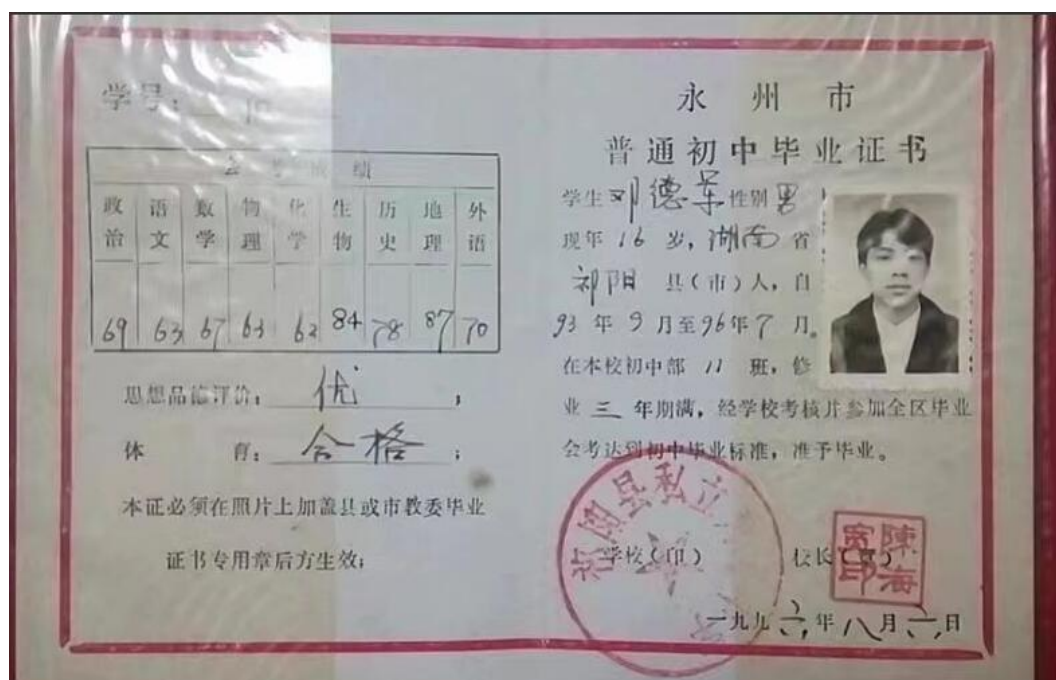 学号：
会考成绩
政治 语文 数学 物理 化学 生物 历史 地理 外语
69 63 67 63 62 84 78 87 70
思想品德评价：优；
体育：合格；
本证必须在照片上加盖县或市教委毕业
证书专用章后方生效；
永州市
普通初中毕业证书
学生邓德荣性别男
现年16岁，湖南省
祁阳县（市）人，自
93年9月至96年7月。
在本校初中部11班，修
业三年期满，经学校考核并参加全区毕业
会考达到初中毕业标准，准予毕业。
祁阳县私立
学校（印） 校长（章）
陳海寬印
一九九六年八月六日